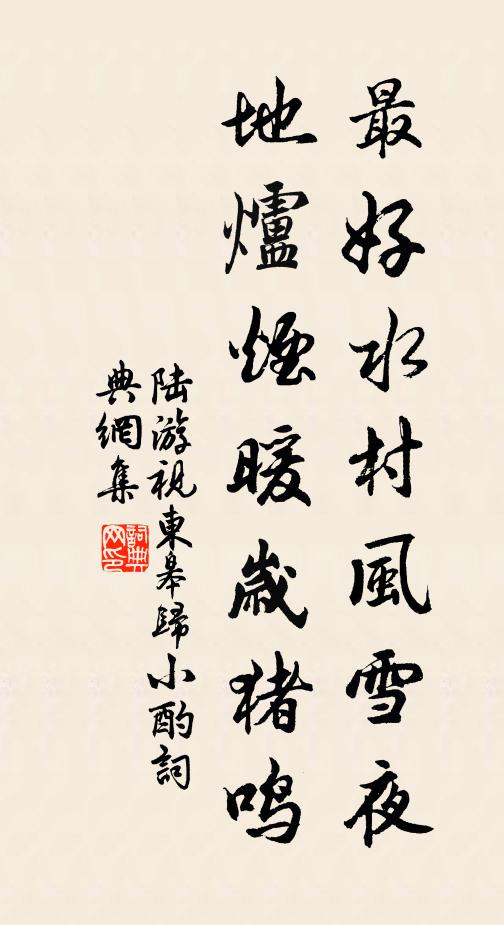 最好水村風雪夜
地爐煙暖歲猪鳴
陆游視東皋歸小酌詞
典網集
詞典網印